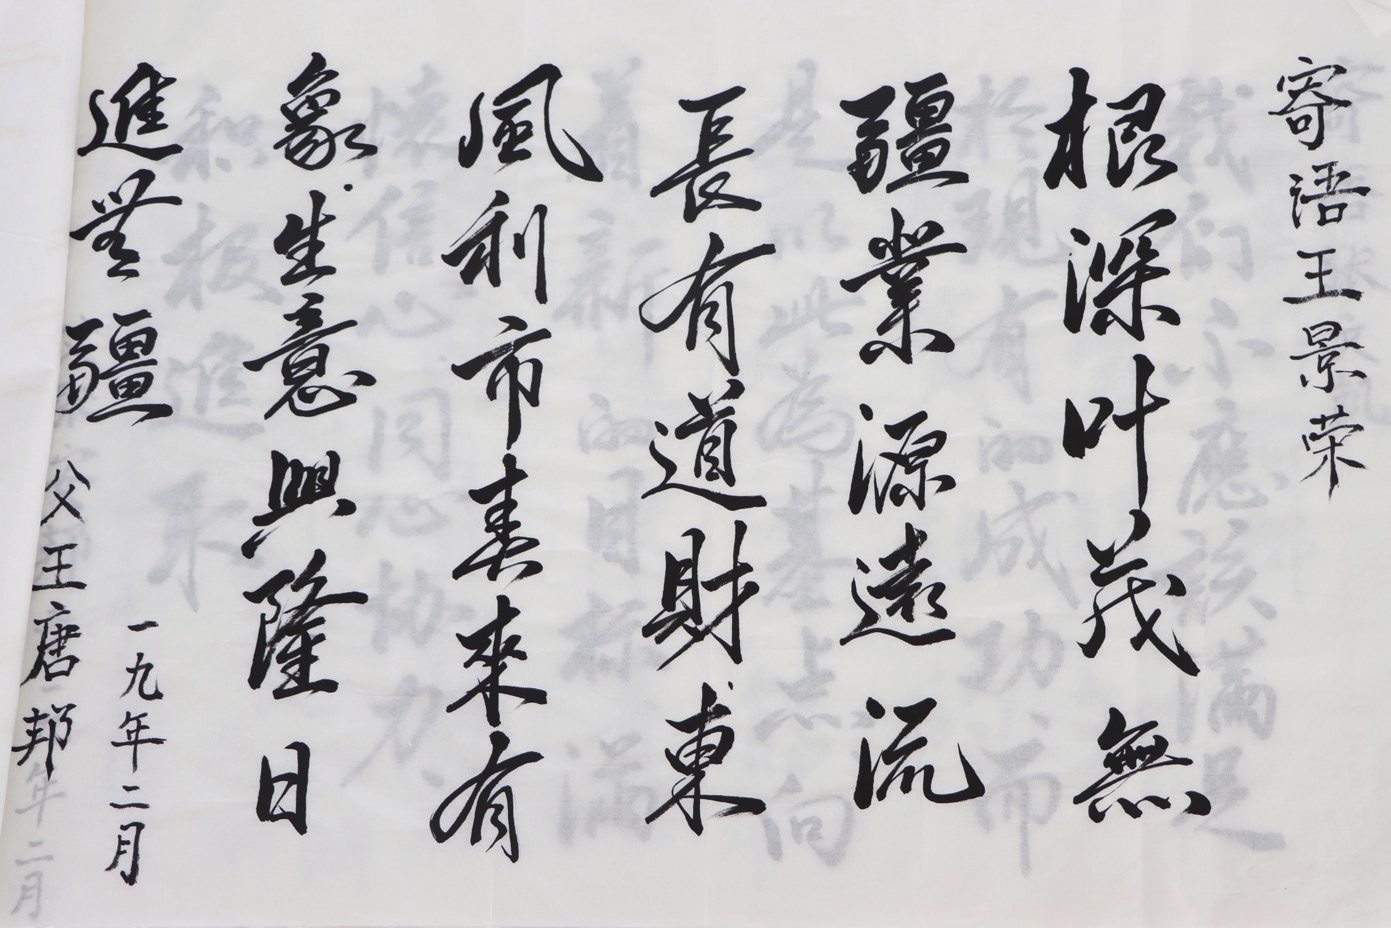 寄语王景荣
根深叶茂無
疆業源遠流
長有道財東
風利市春來有
象生意興隆日
進無疆
父王唐邦
一九年二月